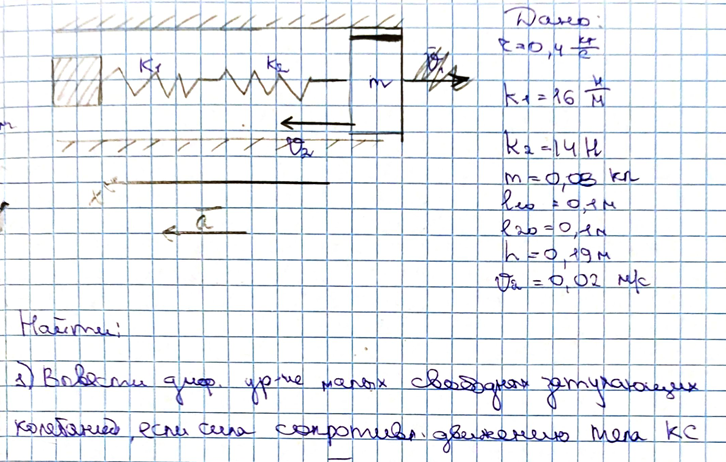 Дано:
r=0,4 кг/с
K1
K2
m
K1=16 н/м
V2
K2=14 Н
m=0,08 кг
l10=0,1м
l20=0,1м
x
a
h=0,19м
V2=0,02 м/с
Найти:
1) Вывести диф. ур-ие малых свободных затухающих
колебаний, если сила сопротивл. движению тела КС